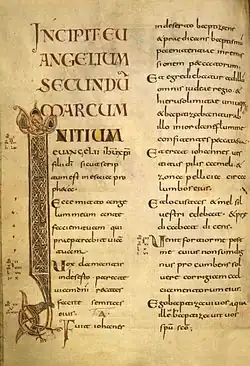 INCIPIT EU
ANGELIUM
SECUNDŪ
MARCUM
INITIUM
EUANGELII
filii dī sicut scrip
tum est in esaia pro
pheta
Ecce mitto ange
lum meum ante
faciem tuam qui
praeparabit uiam
tuam
Uox clamantis
in deserto parate
uiam dnī rectas
facite semitas
eius
Fuit iohannes
in deserto baptizans
et praedicans baptismū
paenitentiae in remis
sionem peccatorum
omnis iudaeae regio et
hierusolimitae uniuersi
et baptizabantur ab
illo in iordane flumine
confitentes peccata sua
Et erat iohannes ues
titus pilis cameli et
zona pellicia circa
lumbos eius
Et locustas et mel sil
uestre edebat et prae
dicabat dicens
Uenit fortior me post
me cuius non sum dig
nus procumbens sol
uere corrigiam cal
ciamentorum eius
Ego baptizaui uos aqua
ille baptizabit uos
spū scō